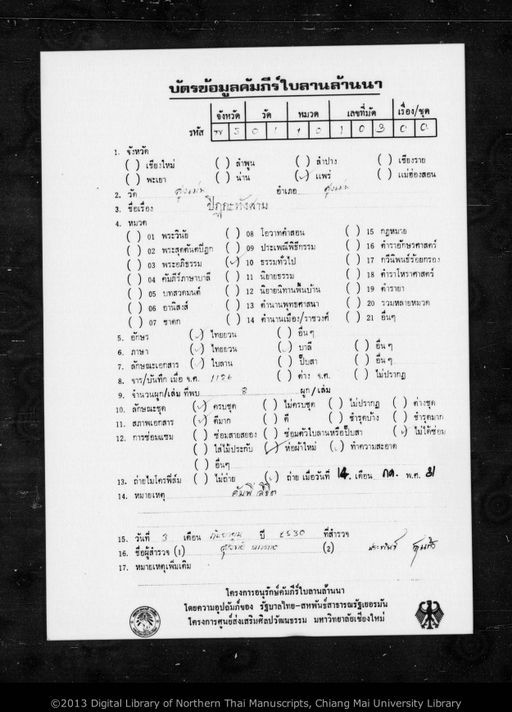 บัตรข้อมูลคัมภีร์ใบลานล้านนา
จังหวัด วัด หมวด เลขที่มัด เรื่อง/ชุด
รหัส พร 5 0 1 1 0 1 0 3 0 0
1. จังหวัด
( ) เชียงใหม่ ( ) ลำพูน ( ) ลำปาง ( ) เชียงราย
( ) พะเยา ( ) น่าน (✓) แพร่ ( ) แม่ฮ่องสอน
2. วัด สูงเม่น อำเภอ สูงเม่น
3. ชื่อเรื่อง ปิฎกะทังสาม
4. หมวด
( ) 01 พระวินัย ( ) 08 โอวาทคำสอน ( ) 15 กฎหมาย
( ) 02 พระสุตตันตปิฎก ( ) 09 ประเพณีพิธีกรรม ( ) 16 ตำราอักษรศาสตร์
( ) 03 พระอภิธรรม (✓) 10 ธรรมทั่วไป ( ) 17 กวีนิพนธ์ร้อยกรอง
( ) 04 คัมภีร์ภาษาบาลี ( ) 11 นิยายธรรม ( ) 18 ตำราโหราศาสตร์
( ) 05 บทสวดมนต์ ( ) 12 นิยายนิทานพื้นบ้าน ( ) 19 ตำรายา
( ) 06 อานิสงส์ ( ) 13 ตำนานพุทธศาสนา ( ) 20 รวมหลายหมวด
( ) 07 ชาดก ( ) 14 ตำนานเมือง/ราชวงศ์ ( ) 21 อื่นๆ
5. อักษร (✓) ไทยยวน ( ) อื่นๆ
6. ภาษา (✓) ไทยยวน ( ) บาลี ( ) อื่นๆ
7. ลักษณะเอกสาร (✓) ใบลาน ( ) ปั๊บสา ( ) อื่นๆ
8. จาร/บันทึก เมื่อ จ.ศ. 1196 ( ) ค่าง จ.ศ. ( ) ไม่ปรากฏ
9. จำนวนผูก/เล่ม ที่พบ 8 ผูก/เล่ม
10. ลักษณะชุด (✓) ครบชุด ( ) ไม่ครบชุด ( ) ไม่ปรากฏ ( ) ต่างชุด
11. สภาพเอกสาร (✓) ดีมาก ( ) ดี ( ) ชำรุดบ้าง ( ) ชำรุดมาก
12. การซ่อมแซม ( ) ซ่อมสายสยอง ( ) ซ่อมตัวใบลานหรือปั๊บสา (✓) ไม่ได้ซ่อม
( ) ใส่ไม้ประกับ (✓) ห่อผ้าใหม่ ( ) ทำความสะอาด
( ) อื่นๆ
13. ถ่ายไมโครฟิล์ม ( ) ไม่ถ่าย (✓) ถ่าย เมื่อวันที่ 14. เดือน กค. พ.ศ. 31
14. หมายเหตุ
15. วันที่ 3 เดือน กันยายน ปี 2530 ที่สำรวจ
16. ชื่อผู้สำรวจ (1) (2)
17. หมายเหตุเพิ่มเติม
โครงการอนุรักษ์คัมภีร์ใบลานล้านนา
โดยความอุปถัมภ์ของ รัฐบาลไทย-สหพันธ์สาธารณรัฐเยอรมัน
โครงการศูนย์ส่งเสริมศิลปวัฒนธรรม มหาวิทยาลัยเชียงใหม่
©2013 Digital Library of Northern Thai Manuscripts, Chiang Mai University Library